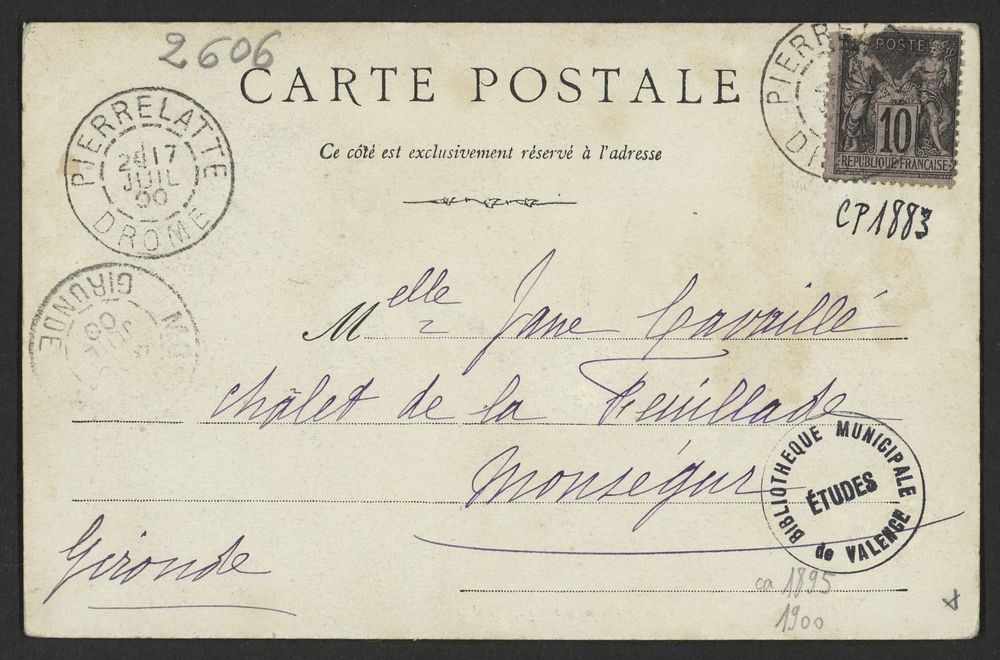 2606
CARTE POSTALE
Ce côté est exclusivement réservé à l'adresse
PIERRELATTE
17
JUIL
00
DROME
PIERREL
D
POSTE
10
REPUBLIQUE FRANÇAISE
CP1883
GIRONDE
Melle Jane Cavaillé
Châlet de la Feuillade
Monségur
Gironde
BIBLIOTHEQUE MUNICIPALE
ÉTUDES
de VALENCE
ca 1895
1900